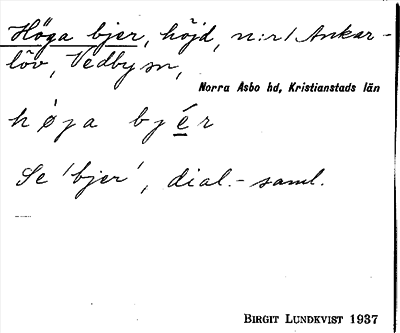 Höga bjer, höjd, n:r 1 Ankar-
löv, Vedby sn,
Norra Åsbo hd, Kristianstads län
høja bjér
Se 'bjer', dial.- saml.
BIRGIT LUNDKVIST 1937